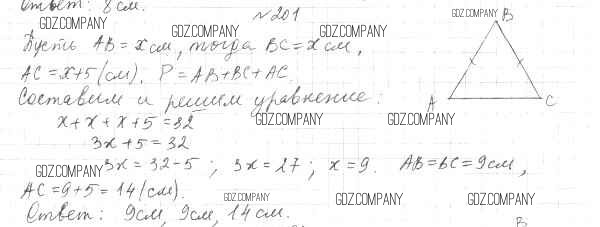 Ответ: 8 см.
№201
GDZ.COMPANY GDZ.COMPANY GDZ.COMPANY
Пусть AB = x см, тогда BC = x см,
AC = x+5 (см). P = AB+BC+AC.
GDZ.COMPANY GDZ.COMPANY
Составим и решим уравнение:
x + x + x + 5 = 32
GDZ.COMPANY GDZ.COMPANY
3x + 5 = 32
GDZ.COMPANY
3x = 32-5 ; 3x = 27 ; x = 9. AB = BC = 9 см,
AC = 9+5 = 14 (см).
GDZ.COMPANY GDZ.COMPANY GDZ.COMPANY
Ответ: 9 см, 9 см, 14 см.
B
A
C
B